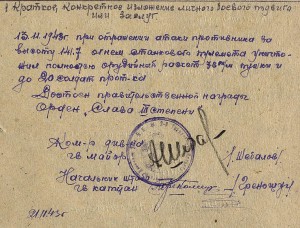 Краткое, конкретное изложение личного боевого подвига
или заслуг
13.11.1943г при отражении атаки противника за
высоту 141.7 огнем станкового пулемета уничто-
жил полностью орудийный расчет пушки и
до 20 солдат пр-ка
Достоин правительственной награды
Орден „Слава III степени
Ком-р див-на
гв майор
Начальник штаба
гв капитан
21.11.43г